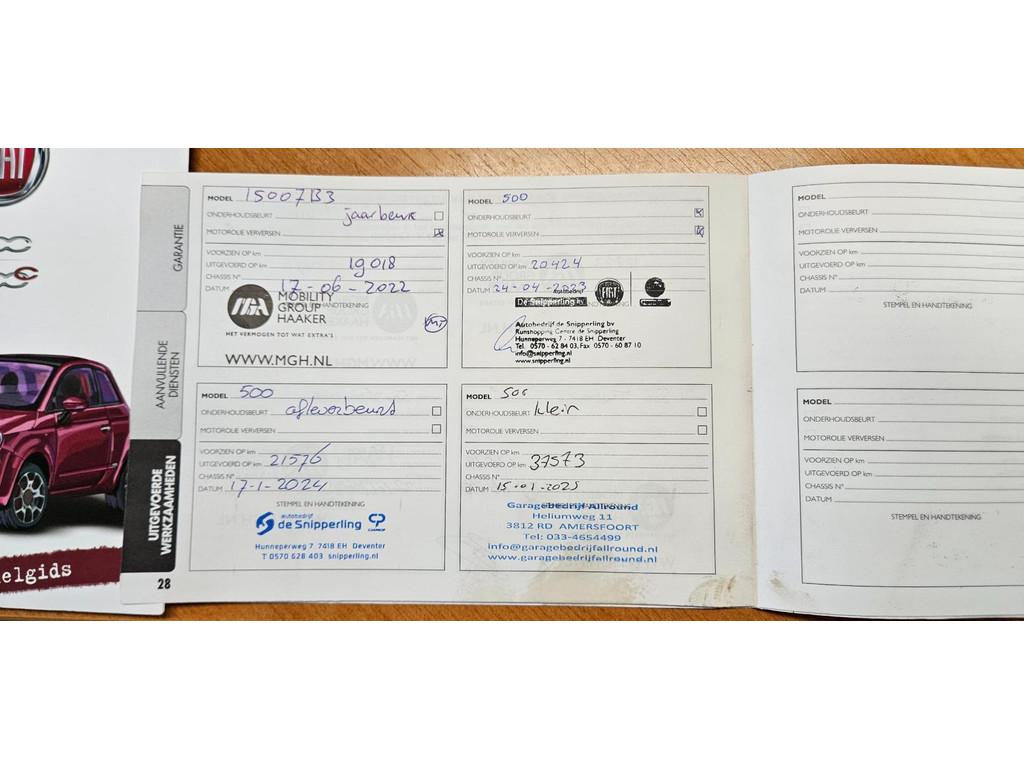 FIAT
elgids
GARANTIE
AANVULLENDE
DIENSTEN
UITGEVOERDE
WERKZAAMHEDEN
28
MODEL 15007B3
ONDERHOUDSBEURT jaarbeurt
MOTOROLIE VERVERSEN
VOORZIEN OP km
UITGEVOERD OP km 19018
CHASSIS N°
DATUM 17-06-2022
STEMPEL EN HANDTEKENING
MOBILITY
GROUP
HAAKER
HET VERMOGEN TOT WAT EXTRA'S
WWW.MGH.NL
MODEL 500
ONDERHOUDSBEURT
MOTOROLIE VERVERSEN
VOORZIEN OP km
UITGEVOERD OP km 20424
CHASSIS N°
DATUM 24-04-2023
Autobedrijf
De Snipperling bv
FIAT
Autobedrijf de Snipperling bv
Runshopping Centre de Snipperling
Hunneperweg 7 - 7418 EH Deventer
Tel. 0570 - 62 84 03, Fax 0570 - 60 87 10
info@snipperling.nl
www.snipperling.nl
MODEL 500
ONDERHOUDSBEURT afleverbeurt
MOTOROLIE VERVERSEN
VOORZIEN OP km
UITGEVOERD OP km 21576
CHASSIS N°
DATUM 17-1-2024
STEMPEL EN HANDTEKENING
autobedrijf
de Snipperling
Hunneperweg 7 7418 EH Deventer
T 0570 628 403 snipperling.nl
MODEL 500
ONDERHOUDSBEURT klein
MOTOROLIE VERVERSEN
VOORZIEN OP km
UITGEVOERD OP km 37573
CHASSIS N°
DATUM 15-01-2025
Garagebedrijf Allround
Heliumweg 11
3812 RD AMERSFOORT
Tel: 033-4654499
info@garagebedrijfallround.nl
www.garagebedrijfallround.nl
MODEL
ONDERHOUDSBEURT
MOTOROLIE VERVERSEN
VOORZIEN OP km
UITGEVOERD OP km
CHASSIS N°
DATUM
STEMPEL EN HANDTEKENING
MODEL
ONDERHOUDSBEURT
MOTOROLIE VERVERSEN
VOORZIEN OP km
UITGEVOERD OP km
CHASSIS N°
DATUM
STEMPEL EN HANDTEKENING